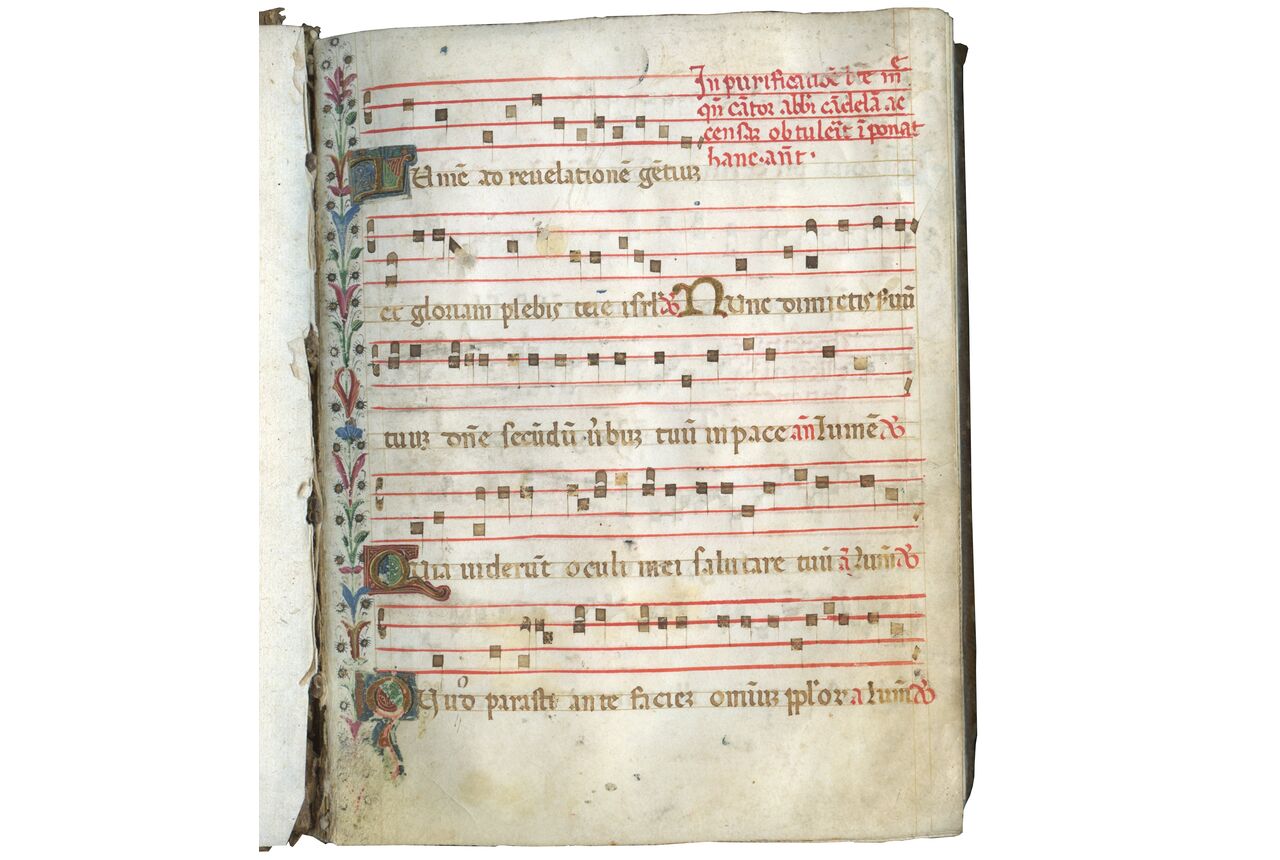 In purificatiōe bt̄e mͤ
qn̄ cātor abbī cādelā ac
censaʒ obtulerīt īponat
hanc · ant̄ ·
Lumē ad reuelationē gētiuʒ
et gloriam plebis tue isrl̄
Nunc dimictis suū
tuuʒ dn̄e secūdū ủbuʒ tuū in pace an̄ Lumē
Quia uiderūt oculi mei salutare tuū a̅ Lum̄
Quod parasti ante facieʒ omīuʒ ppl'or a Lum̄